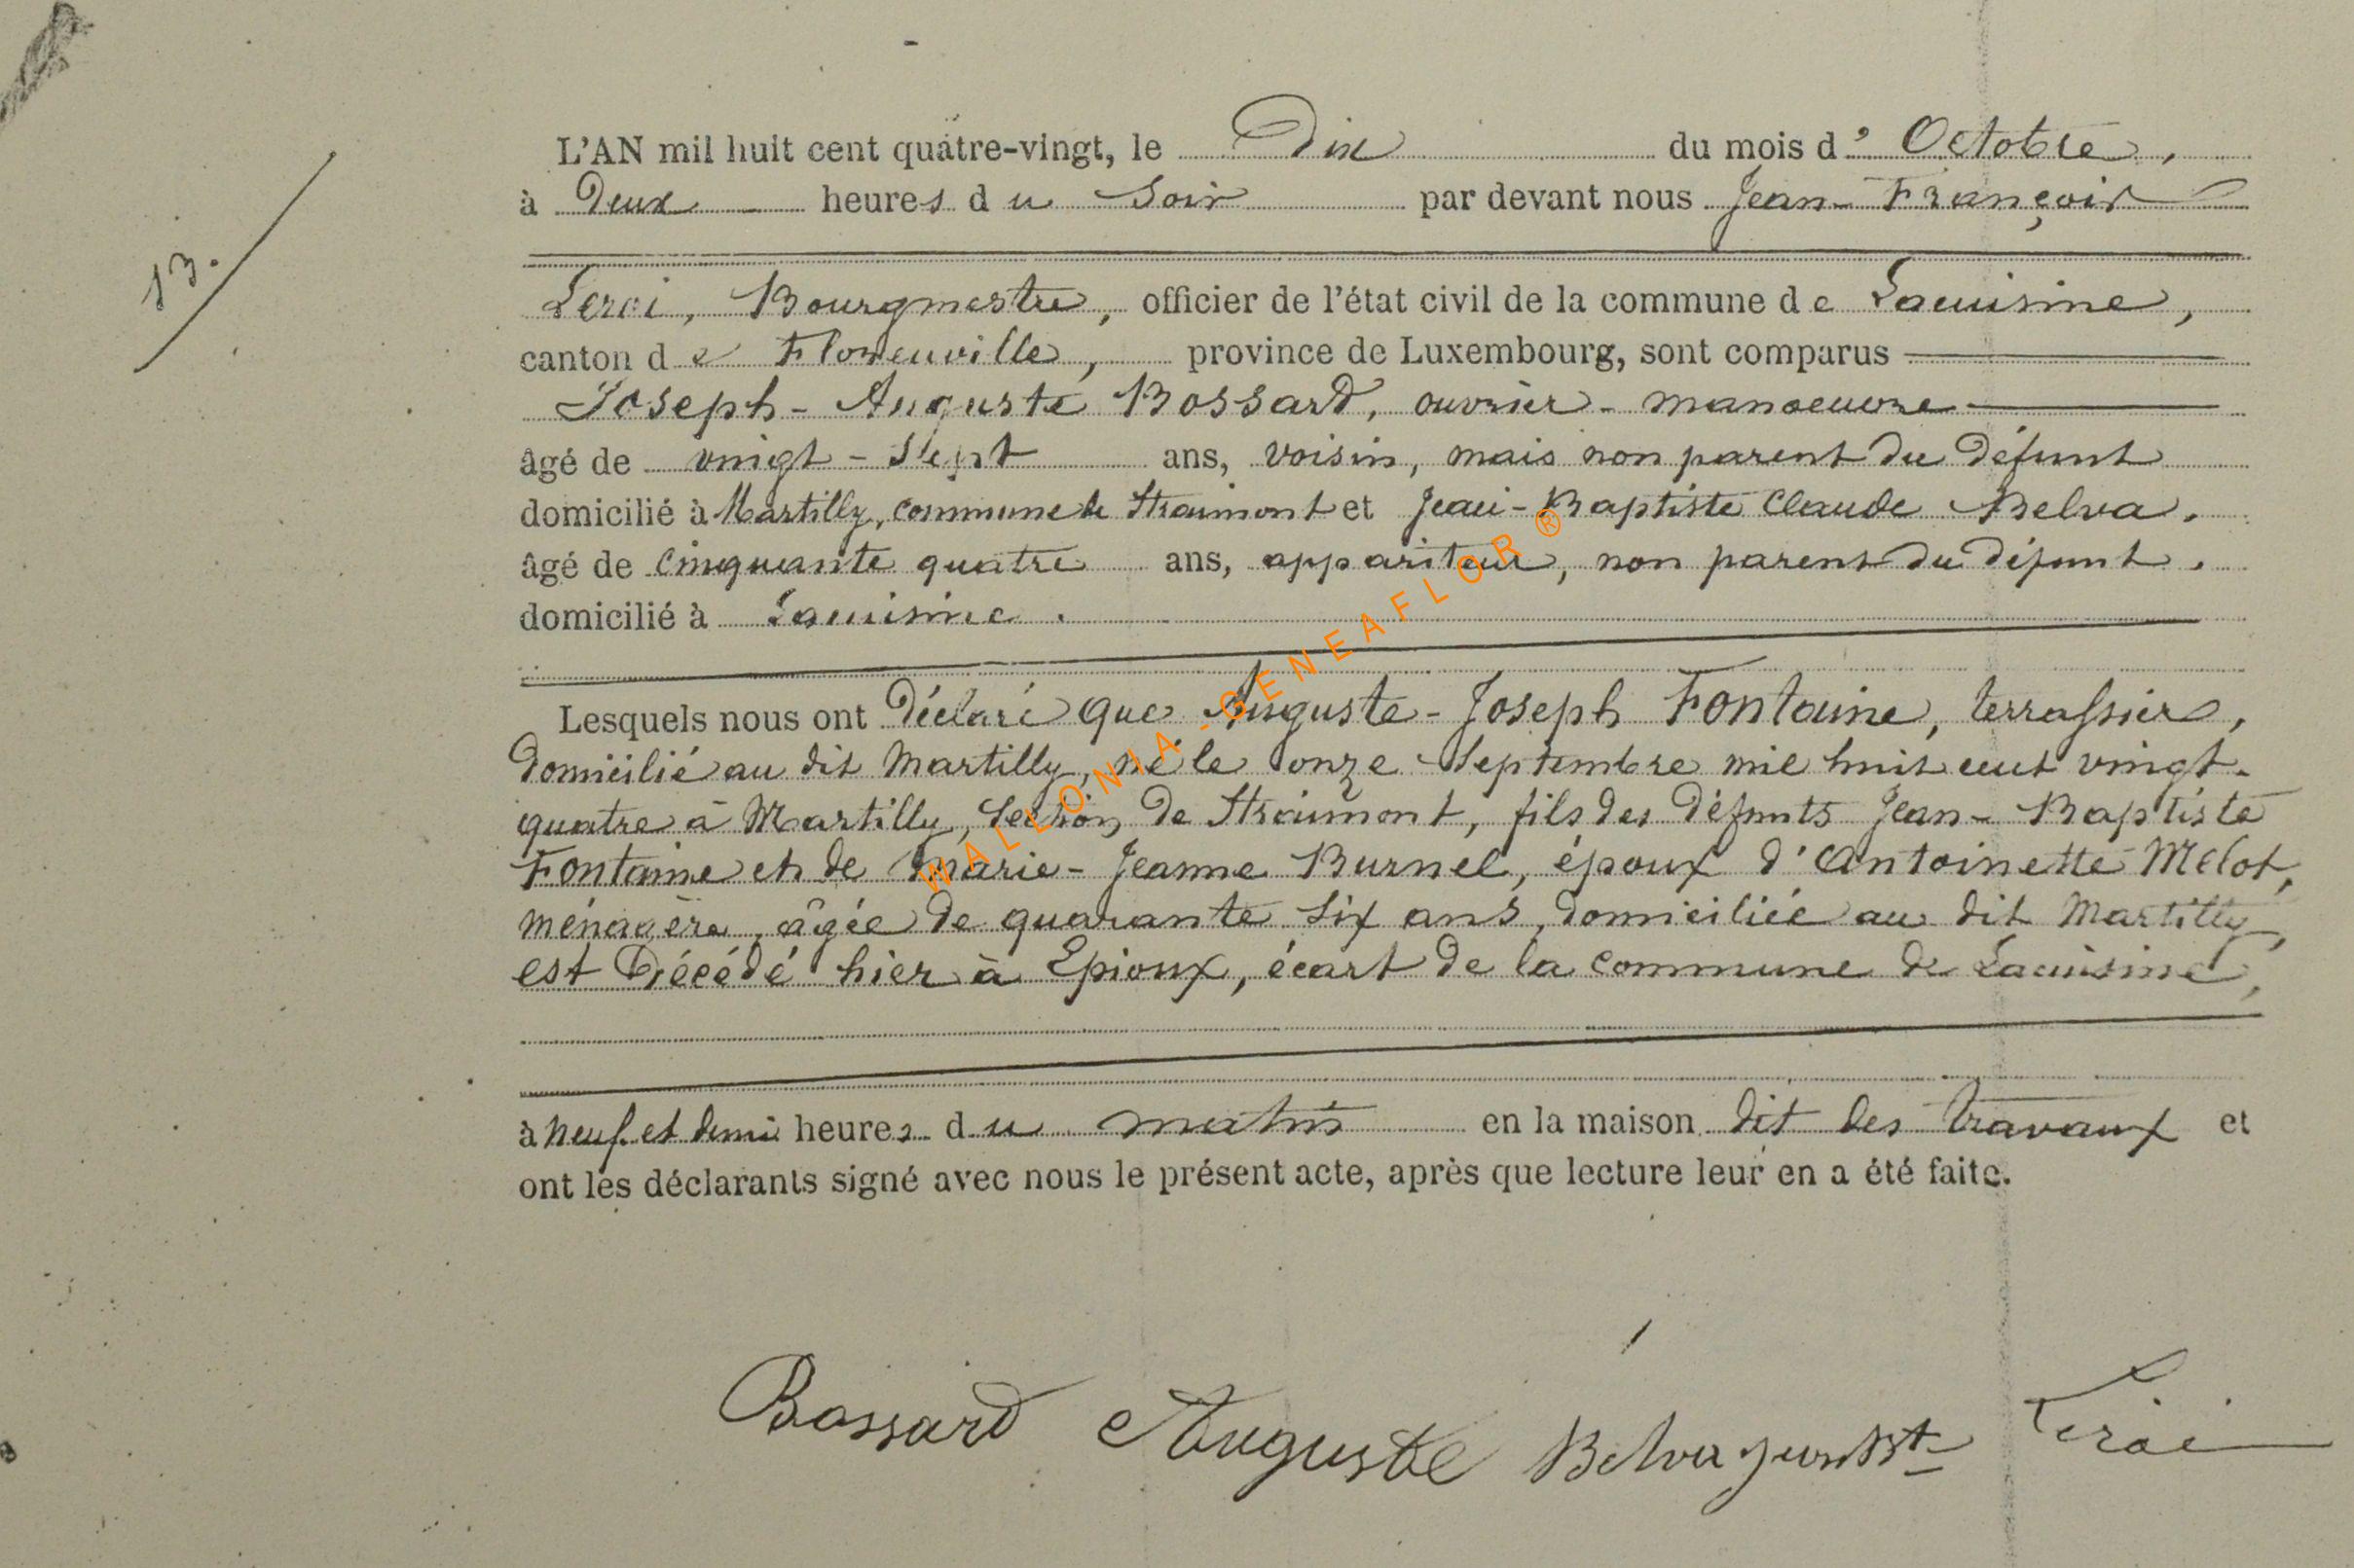 L'AN mil huit cent quatre-vingt, le Dix du mois d' Octobre,
à Deux heures du Soir par devant nous Jean-François
13.
Leroi, Bourgmestre, officier de l'état civil de la commune de Lacuisine,
canton de Florenville, province de Luxembourg, sont comparus
Joseph-Auguste Bossard, ouvrier-manoeuvre
âgé de vingt-Sept ans, voisin, mais non parent du défunt
domicilié à Martilly, commune de Straimont et Jean-Baptiste Claude Belva.
âgé de cinquante quatre ans, appariteur, non parent du défunt.
domicilié à Lacuisine.
Lesquels nous ont Déclaré que Auguste-Joseph Fontaine, terrassier,
domicilié au dit Martilly, né le onze Septembre mil huit cent vingt-
quatre à Martilly, Section de Straimont, fils des défunts Jean-Baptiste
Fontaine et de Marie-Jeanne Burnel, époux d'Antoinette Melot,
ménagère, âgée de quarante six ans, domiciliée au dit Martilly,
est Décédé hier à Epioux, écart de la commune de Lacuisine,
à neuf et demi heures du matin en la maison dit des travaux et
ont les déclarants signé avec nous le présent acte, après que lecture leur en a été faite.
Bossard Auguste Belva Jean Bte Leroi
WALLONIA-GENEAFLOR®